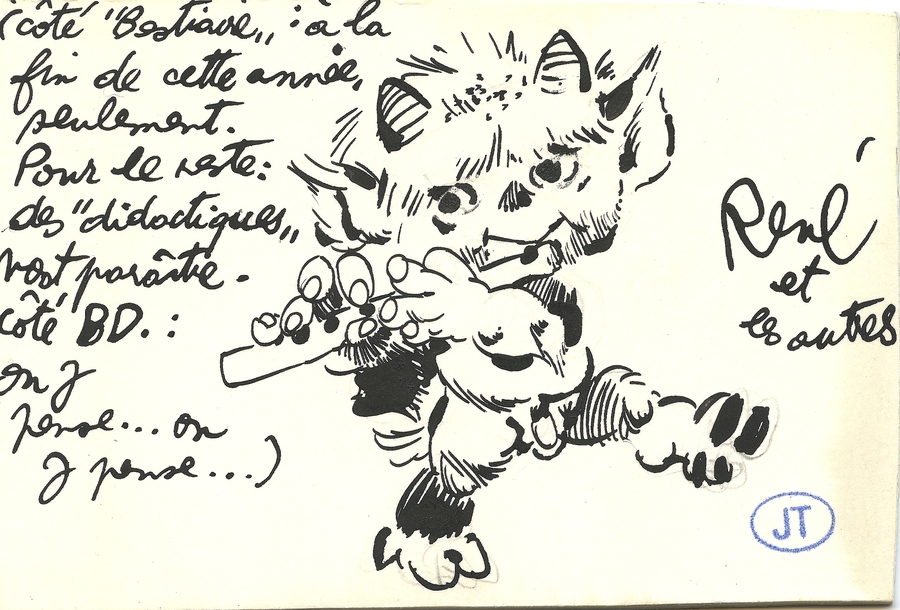 (côté "Bestiaire„ : à la
fin de cette année,
seulement.
Pour le reste :
des "didactiques„
vont paraître.
côté BD. :
on y
pense... on
y pense...)
René
et
les autres
JT